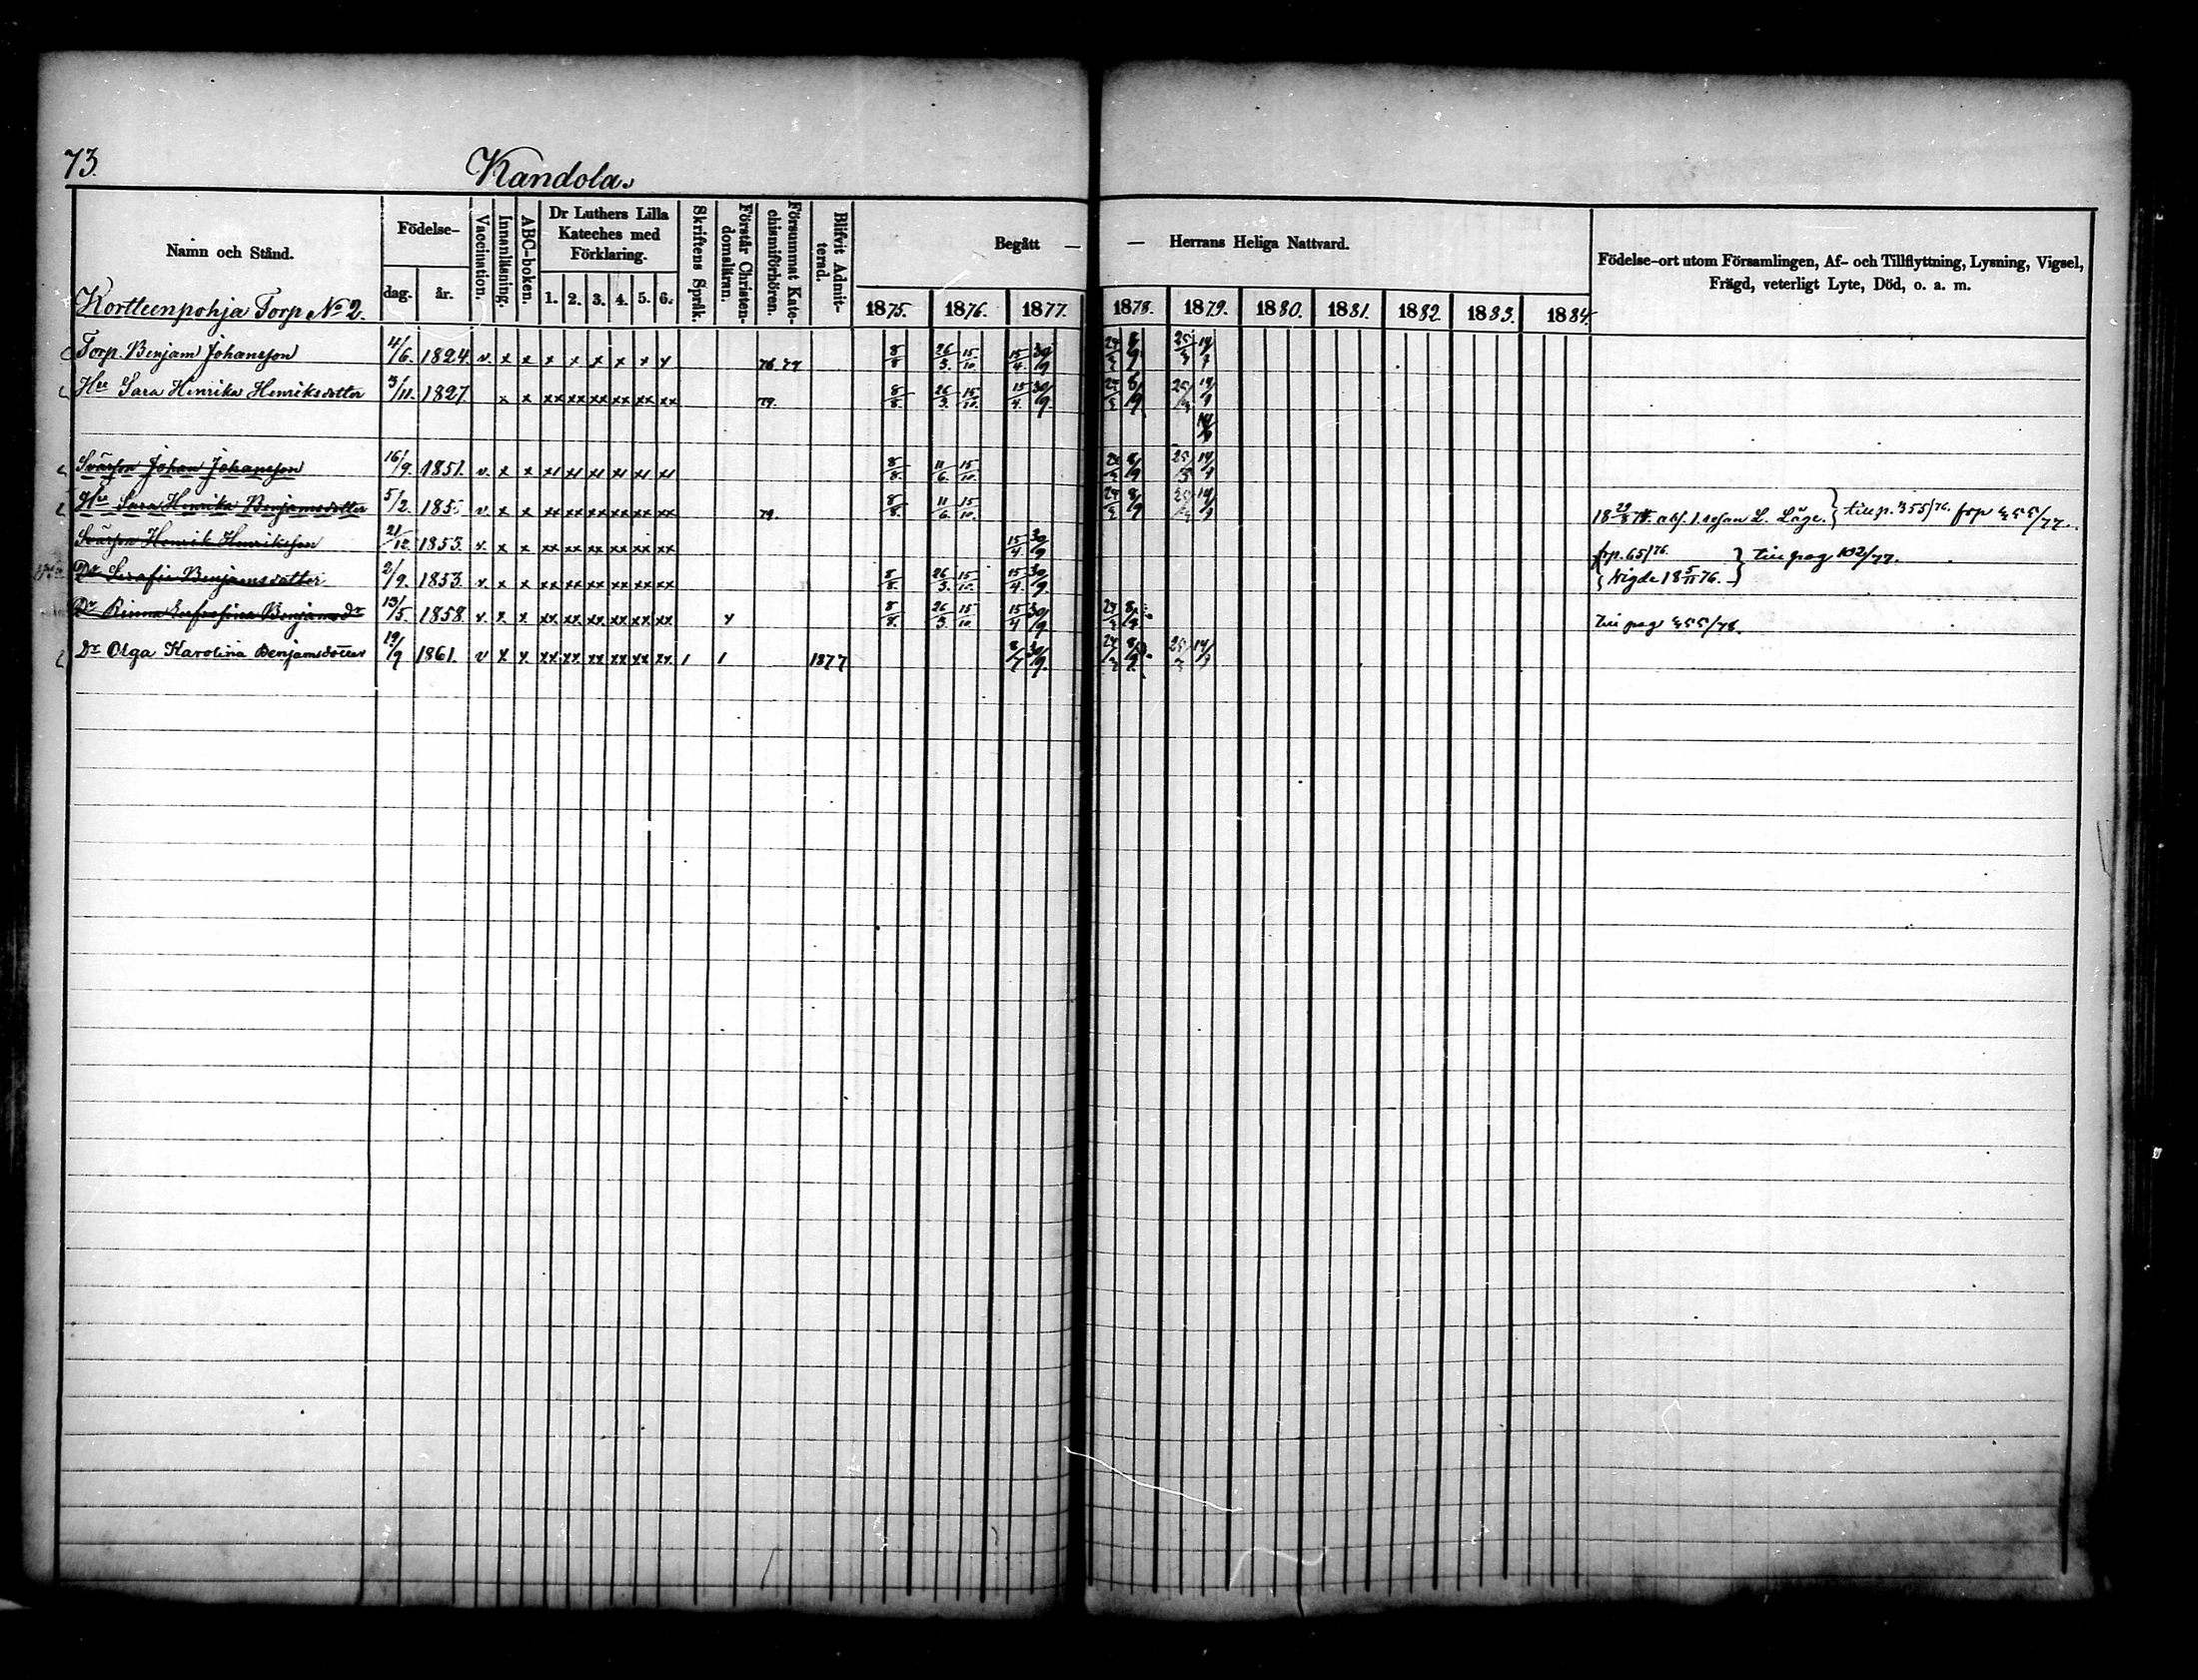 73.
Kandola.
Namn och Stånd.
Födelse-
dag. år.
Vaccination.
Innanläsning.
ABC-boken.
Dr Luthers Lilla Kateches med Förklaring.
1. 2. 3. 4. 5. 6.
Skriftens Språk.
Förstår Christendomsläran.
Försummat Katechismiförhören.
Blifvit Admitterad.
Begått — — Herrans Heliga Nattvard.
1875. 1876. 1877. 1878. 1879. 1880. 1881. 1882. 1883. 1884.
Födelse-ort utom Församlingen, Af- och Tillflyttning, Lysning, Vigsel,
Frägd, veterligt Lyte, Död, o. a. m.
Kortteenpohja Torp No 2.
Torp. Benjam Johansson 4/6. 1824. v. x x x x x x x x 8/8 26/3. 15/10. 15/4. 30/9
Hu Sara Henrika Henriksdotter 3/11. 1827. x x xx xx xx xx xx xx 79. 8/8. 26/3. 15/10. 15/4. 30/9.
Svärson Johan Johansson 16/9. 1851. v. x x 8/8. 11/6. 15/10.
Hu Sara Henrika Benjamsdotter 5/2. 1855 v. x x xx xx xx xx xx xx 79. 8/8. 11/6. 15/10. till p. 355/76. frp 455/77.
Svärson Henrik Henriksson 21/12. 1853. v. x x xx xx xx xx xx xx 15/4. 30/9 frp. 65/76. till pag 102/77.
Dr Serafia Benjamsdotter 2/9. 1853. v. x x xx xx xx xx xx xx 8/8. 26/3. 15/10. 15/4. 30/9. Vigde 18 5/11 76.
Benjamsdr 13/5. 1858. v. x x xx xx xx xx xx xx 8/8. 26/3. 15/10. 15/4 30/9 till pag 455/78.
Dr Olga Karolina Benjamsdotter 19/9 1861. v x x. xx xx xx xx xx xx. 1 1 1877 8/7 30/9.